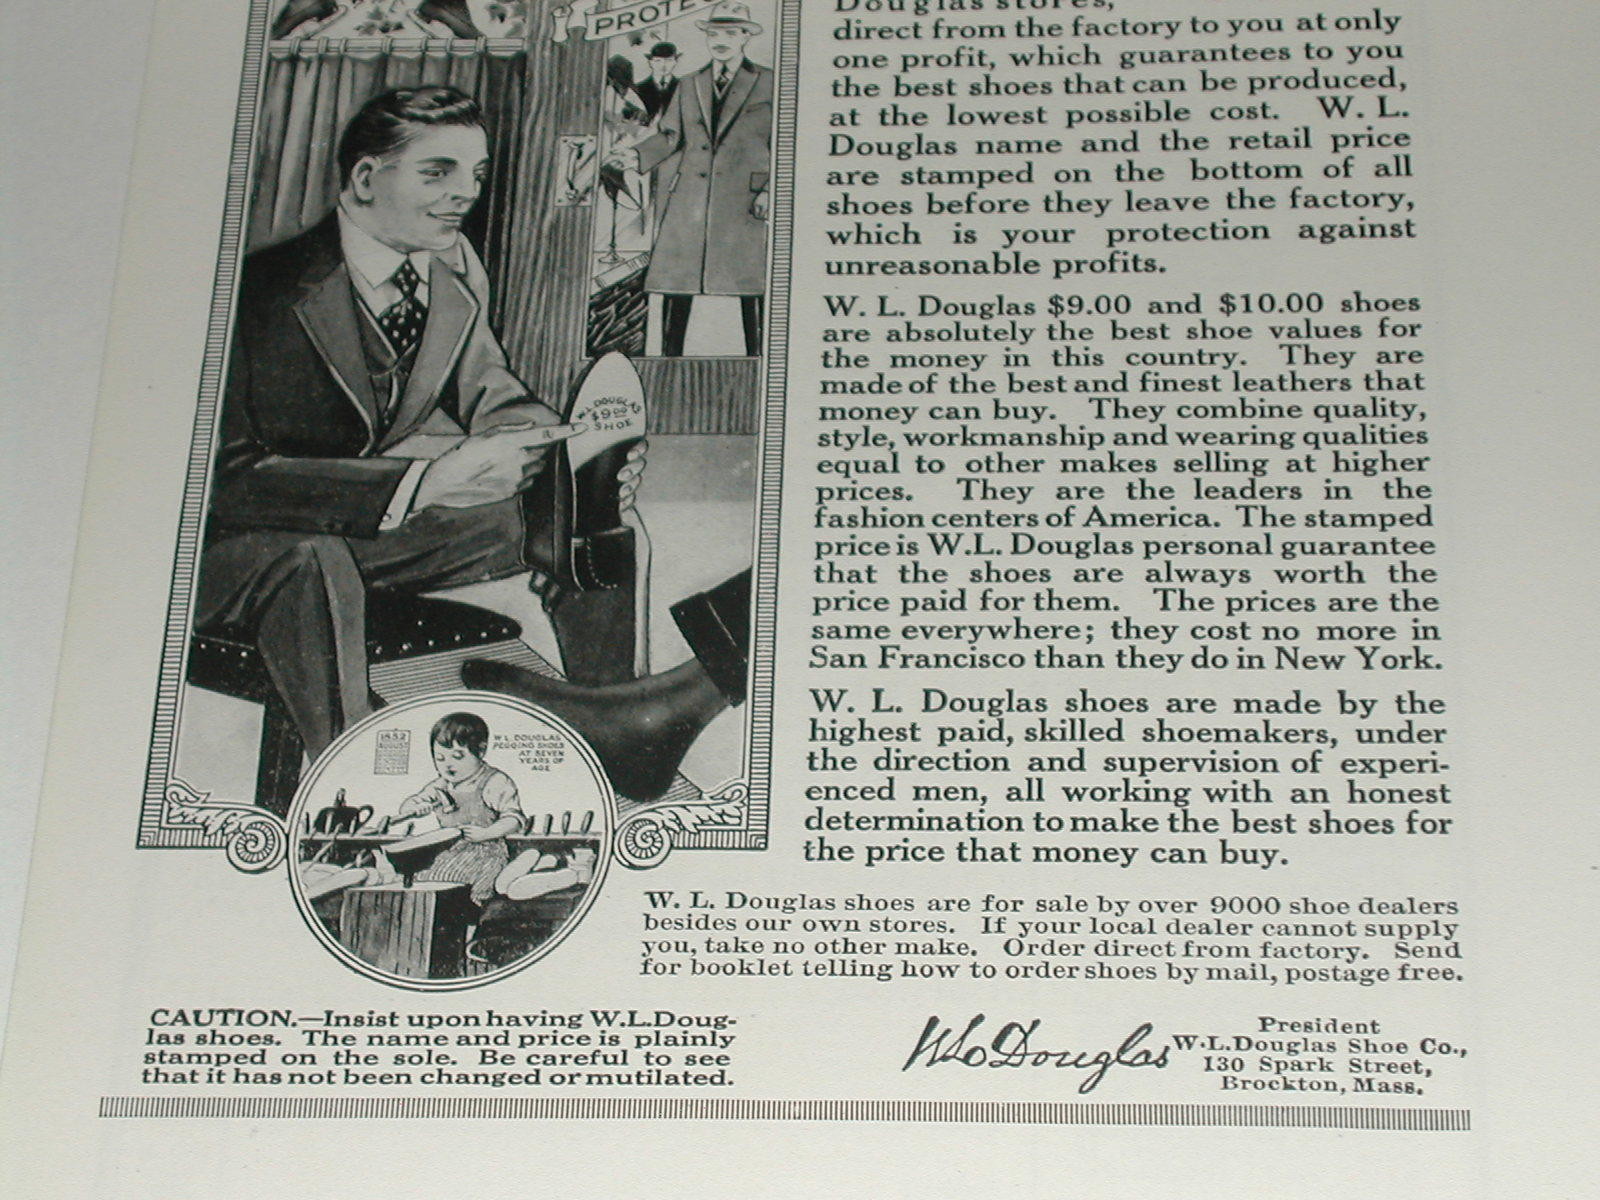 PROTE
Douglas stores,
direct from the factory to you at only
one profit, which guarantees to you
the best shoes that can be produced,
at the lowest possible cost. W. L.
Douglas name and the retail price
are stamped on the bottom of all
shoes before they leave the factory,
which is your protection against
unreasonable profits.
W. L. Douglas $9.00 and $10.00 shoes
are absolutely the best shoe values for
the money in this country. They are
made of the best and finest leathers that
money can buy. They combine quality,
style, workmanship and wearing qualities
equal to other makes selling at higher
prices. They are the leaders in the
fashion centers of America. The stamped
price is W.L. Douglas personal guarantee
that the shoes are always worth the
price paid for them. The prices are the
same everywhere; they cost no more in
San Francisco than they do in New York.
W. L. Douglas shoes are made by the
highest paid, skilled shoemakers, under
the direction and supervision of experi-
enced men, all working with an honest
determination to make the best shoes for
the price that money can buy.
W.L.DOUGLAS
$9.00
SHOE
1852
AUGUST
W L DOUGLAS
PEGGING SHOES
AT SEVEN
YEARS OF
AGE
W. L. Douglas shoes are for sale by over 9000 shoe dealers
besides our own stores. If your local dealer cannot supply
you, take no other make. Order direct from factory. Send
for booklet telling how to order shoes by mail, postage free.
CAUTION.—Insist upon having W.L.Doug-
las shoes. The name and price is plainly
stamped on the sole. Be careful to see
that it has not been changed or mutilated.
W L Douglas
President
W.L.Douglas Shoe Co.,
130 Spark Street,
Brockton, Mass.